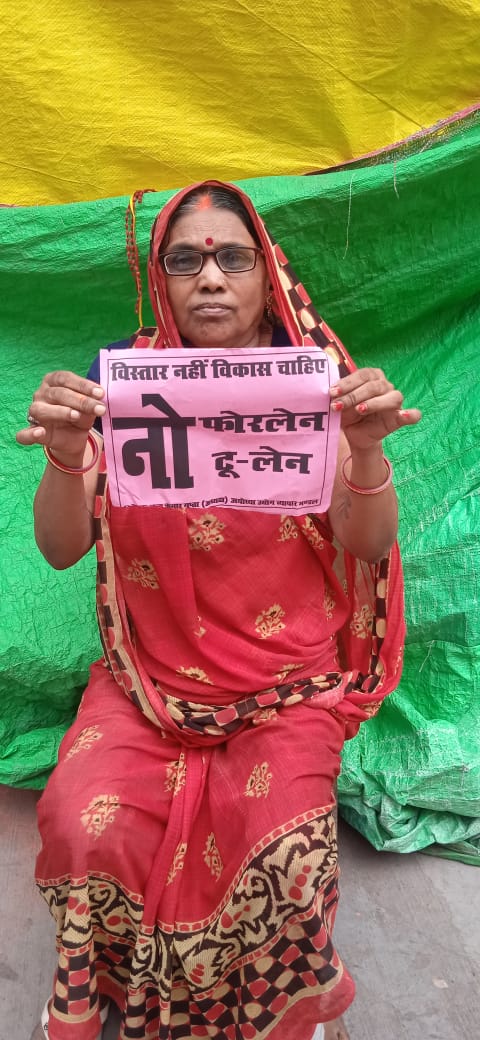 विस्तार नहीं विकास चाहिए
नो फोरलेन
टू-लेन
कुमार गुप्ता (अध्यक्ष) अयोध्या उद्योग व्यापार मण्डल